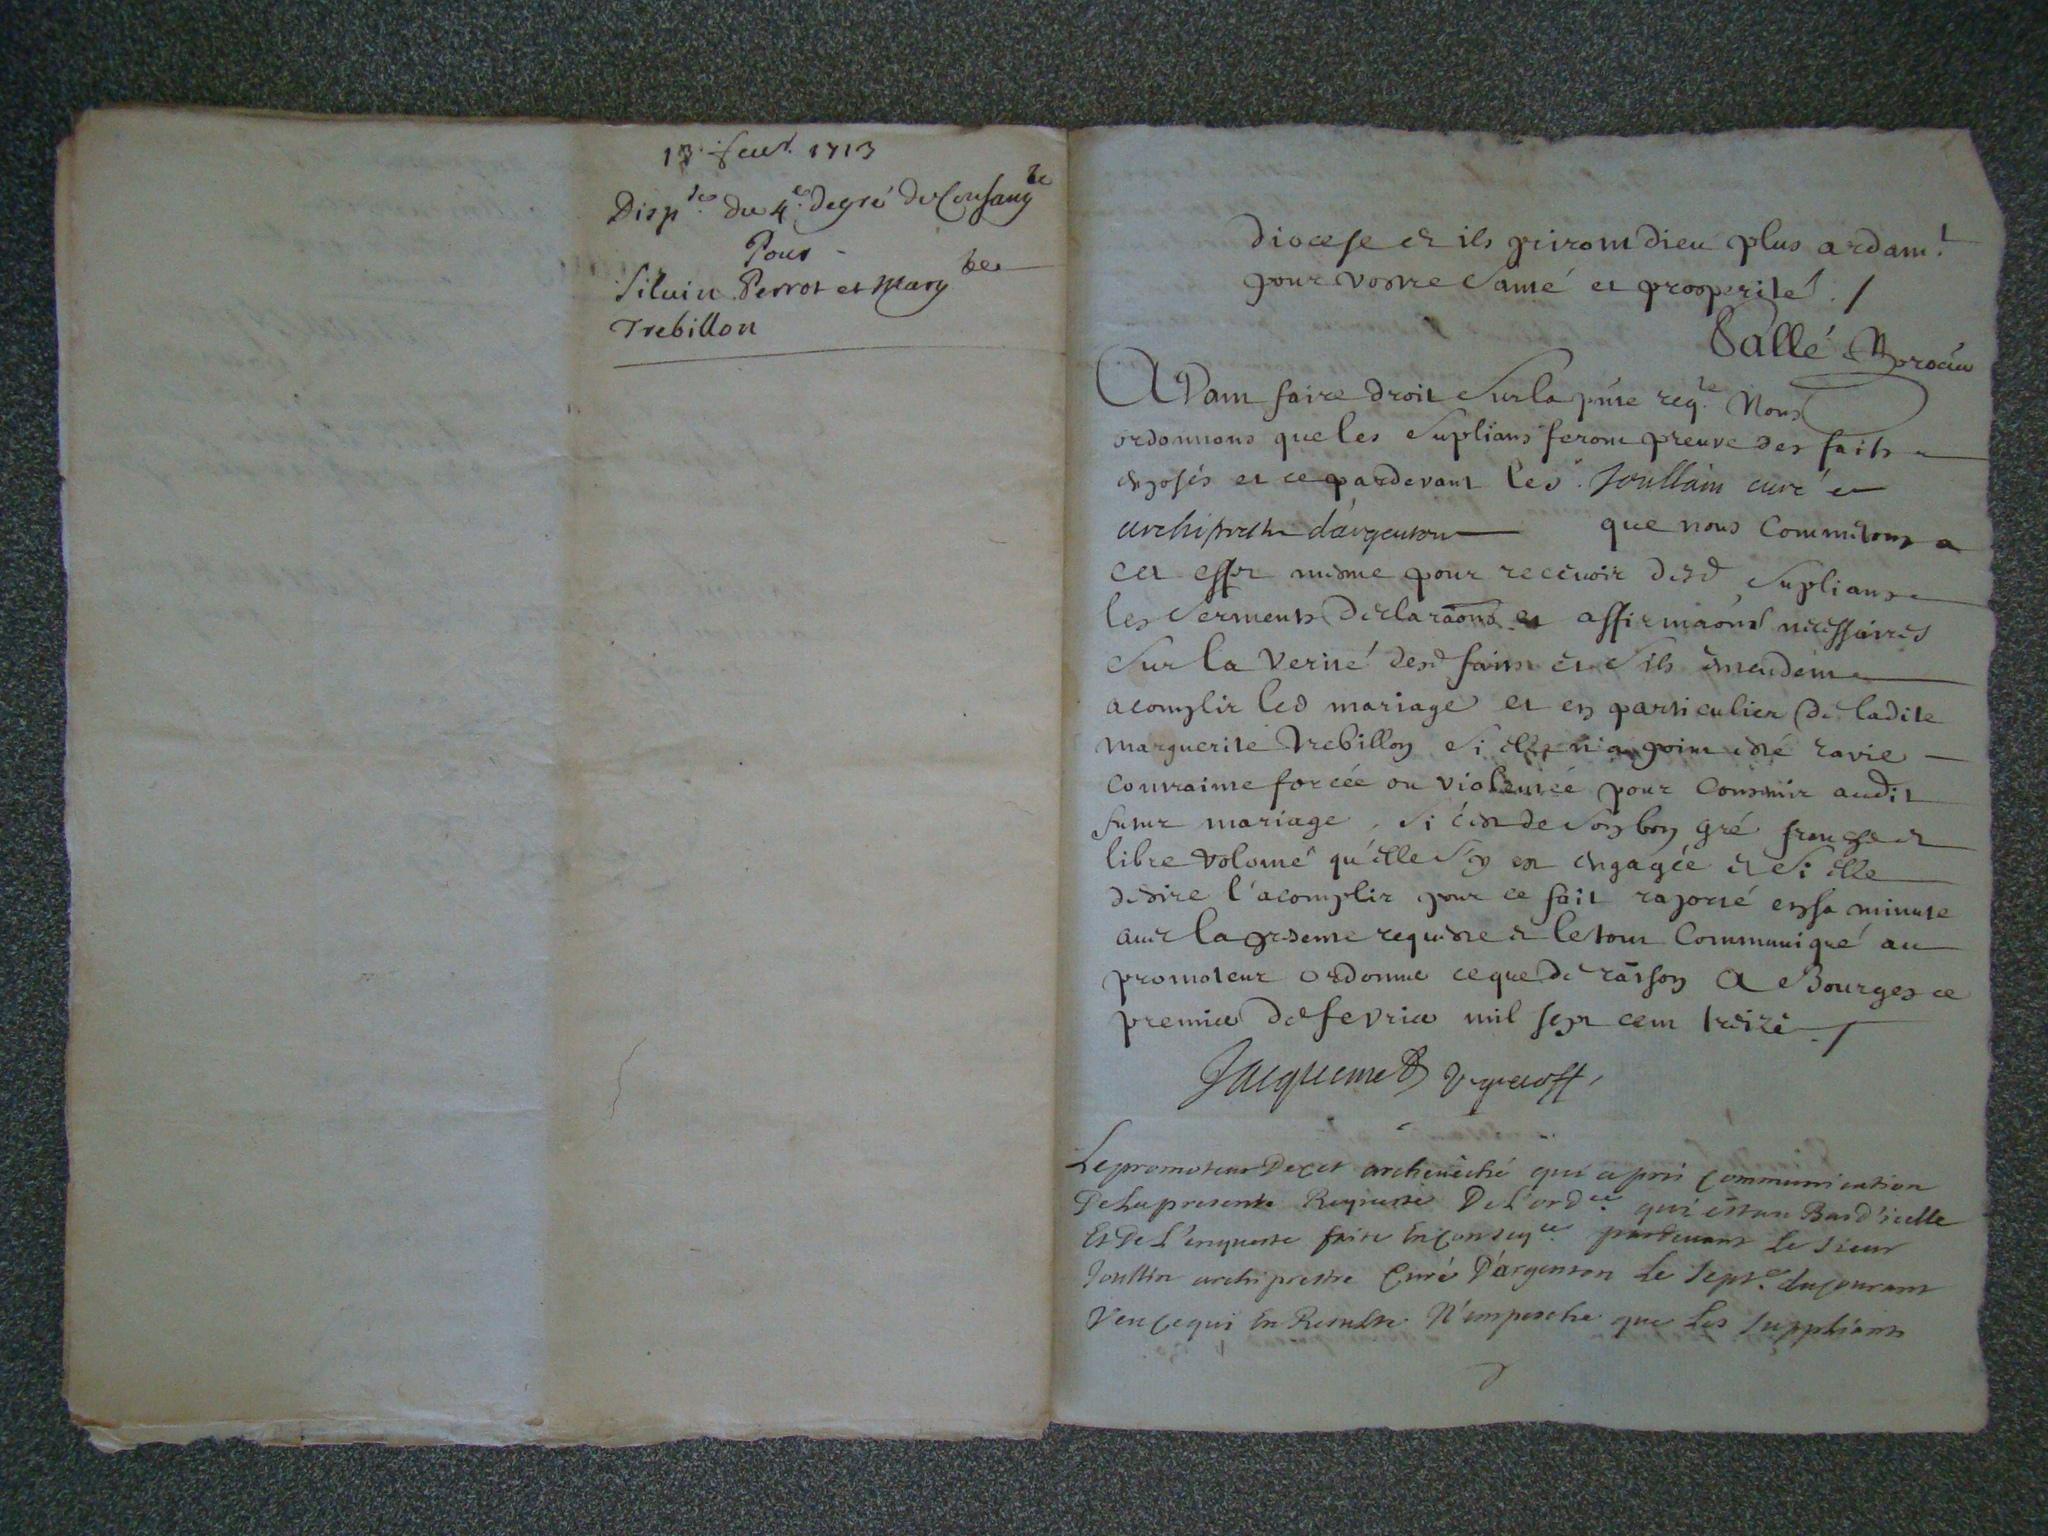 13 feur. 1713
Disp.se du 4.e degré de Consang.té
Pour
Silvin Perrot et Marg.te
Trebillon
diocese et ils priront dieu plus ardam.t
pour vostre santé et prosperité ./
Sallé Procur
Avant faire droit sur la pnte req.te Nous
ordonnons que les suplians feront preuve des faits
exposés et ce pardevant le s.r Joullain curé et
archiprestre d'argenton que nous Commetons a
cet effet mesme pour recevoir desd suplians
les serments declaraons et affirmaons necessaires
sur la verité desd faits et s'ils entendent
acomplir led mariage et en particulier de ladite
marguerite Trebillon si elle n'a point esté ravie
contrainte forcée ou violentée pour consentir audit
futur mariage, si c'est de son bon gré franche et
libre volonté qu'elle s'y est engagée et si elle
desire l'acomplir pour ce fait raporté en sa minute
avec la presente requeste et le tout Communiqué au
promoteur ordonné ce que de raison A Bourges ce
premier de fevrier mil sept cent treize ./
Jacquemet vgeroff,
Le promoteur De cet archeveché qui a pris communication
De la presente Requeste De L'ord.ce qui est au Bas d'icelle
Et De L'enqueste faite En conseq.ce pardevant le sieur
Joullin archiprestre Curé D'argenton le sept.e du courant
Veu ce qui En Resulte N'empesche que les suppliants